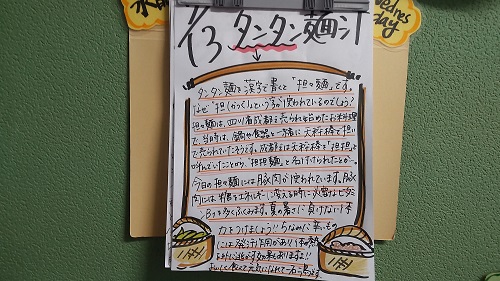 水
wednes
day
7/13 タンタン麺汁
タンタン麺を漢字で書くと「担々麺」です。
なぜ"担(かつぐ)"という字が使われているのでしょう?
担々麺は、四川省成都で売られ始めたお料理
で、当時は、鍋や食器と一緒に天秤棒で担い
で売られていたそうです。成都では天秤棒を「担担」と
呼んでいたことから、"担担麺"と名付けられたとか。
今日の担々麺には豚肉が使われています。豚
肉には、糖をエネルギーに変える時に必要なビタミ
ンB1を多くふくみます。夏の暑さに負けない体
力をつけましょう!!ちなみに辛いもの
には発汗作用があり体の熱
を外に逃がす効果もありますよ!!
おいしく食べて元気になれて一石二鳥です